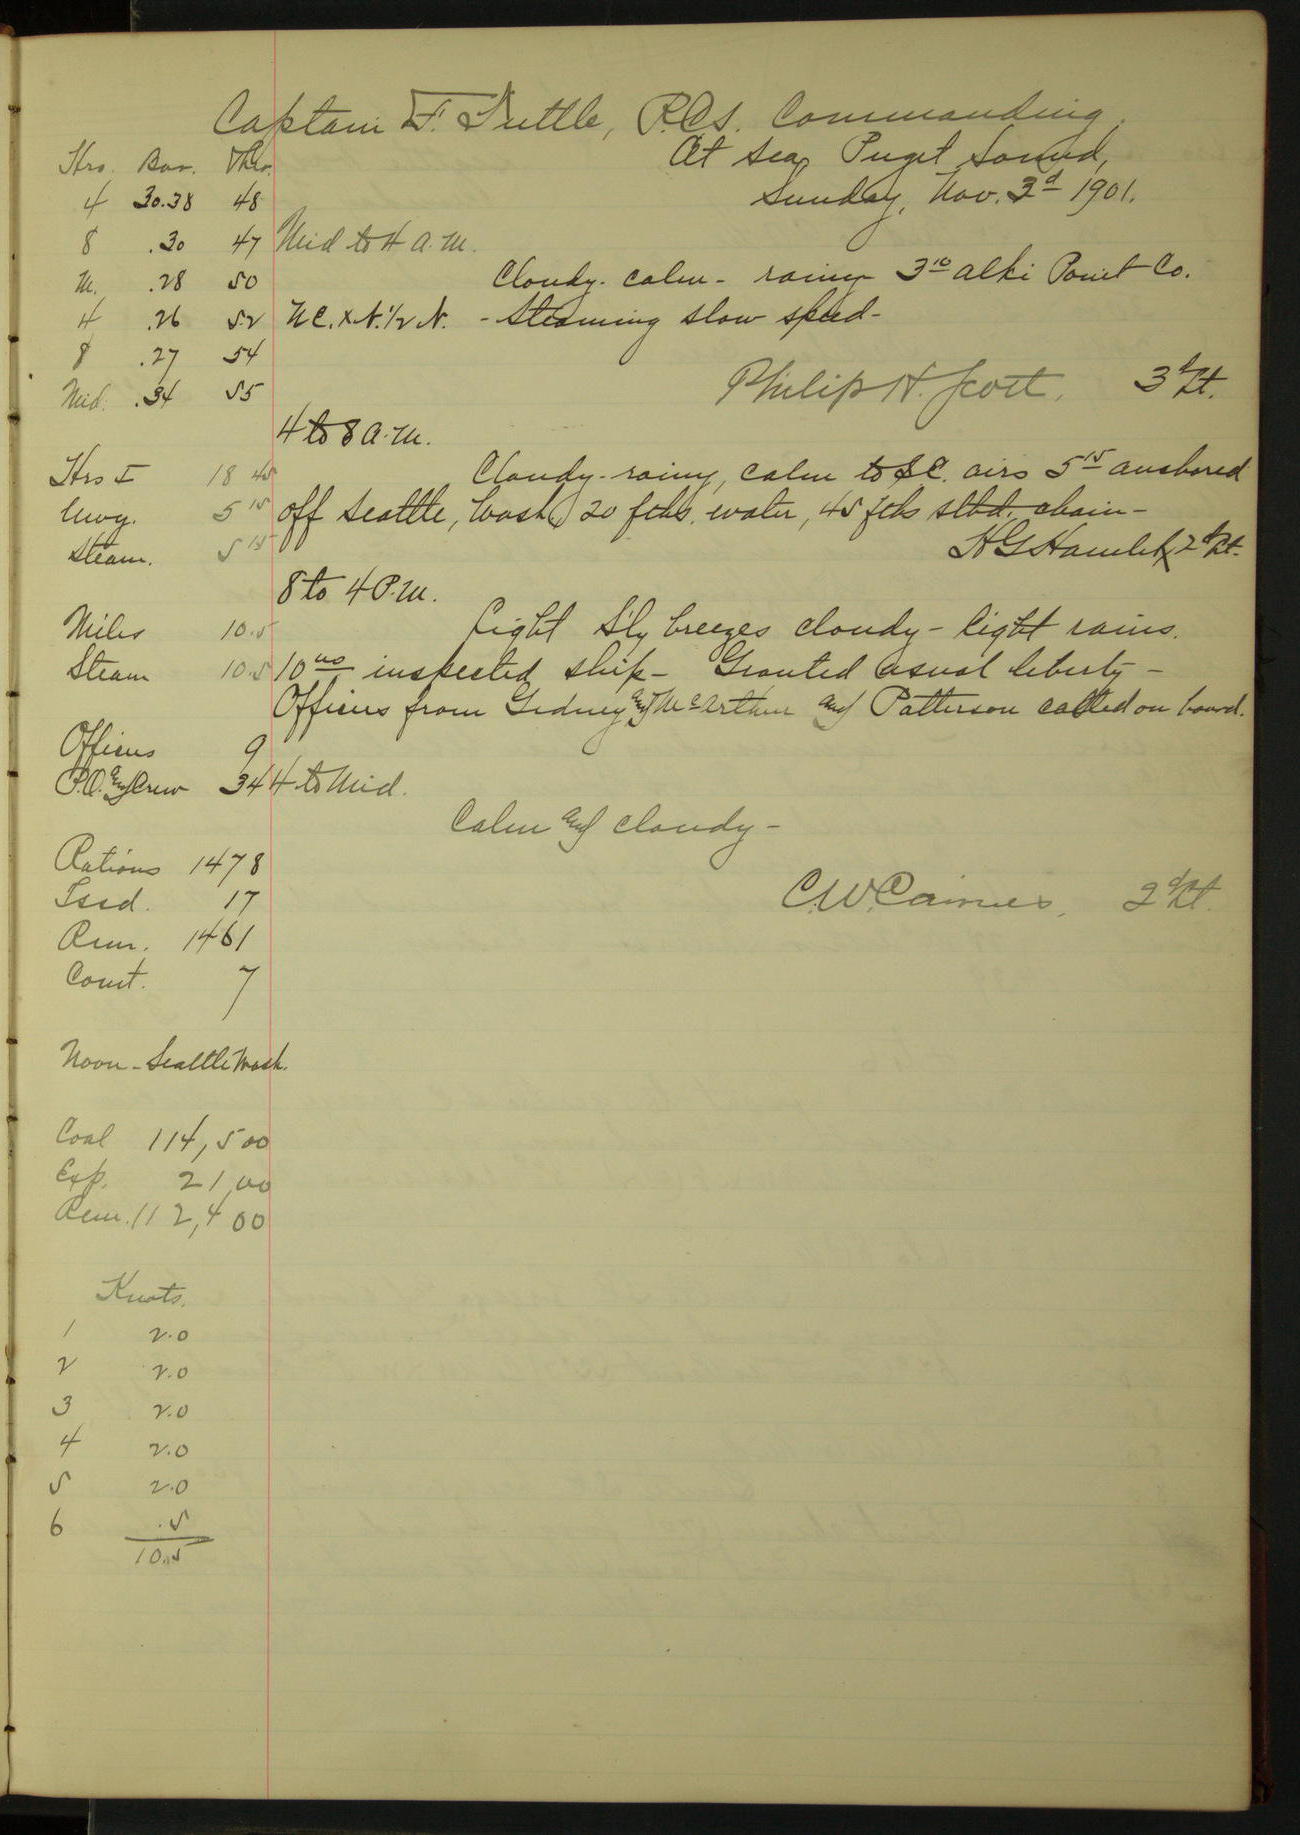 Captain F. Tuttle, R.C.S. Commanding.
At sea, Puget Sound,
Sunday, Nov. 3d 1901.
Hrs. Bar. Ther.
4 30.38 48
8 .30 47
M. .28 50
4 .26 52
8 .27 54
Mid. .34 55
Mid to 4 A.M.
Cloudy - calm - rainy 3 10 Alki Point Co.
N.E. x N. 1/2 N. - Steaming slow speed -
Philip H. Scott, 3d Lt.
4 to 8 A.M.
Cloudy - rainy, calm to S.E. airs 5 15 anchored
off Seattle, Wash, 20 fths. water, 45 fths stbd. chain -
H G Hamlet, 2d Lt.
8 to 4 P.M.
Light S'ly breezes cloudy - light rains.
10 00 inspected ship - Granted usual liberty -
Officers from Gedney and McArthur and Patterson called on board.
4 to Mid.
Calm and cloudy -
C.W. Cairnes, 2d Lt.
Hrs I 18 45
Uwy. 5 15
Steam. 5 15
Miles 10.5
Steam 10.5
Officers 9
P.O. and Crew 34
Rations 1478
Issd. 17
Rem. 1461
Comt. 7
Noon - Seattle Wash.
Coal 114,500
Exp. 21,00
Rem. 112,400
Knots.
1 2.0
2 2.0
3 2.0
4 2.0
5 2.0
6 .5
10.5